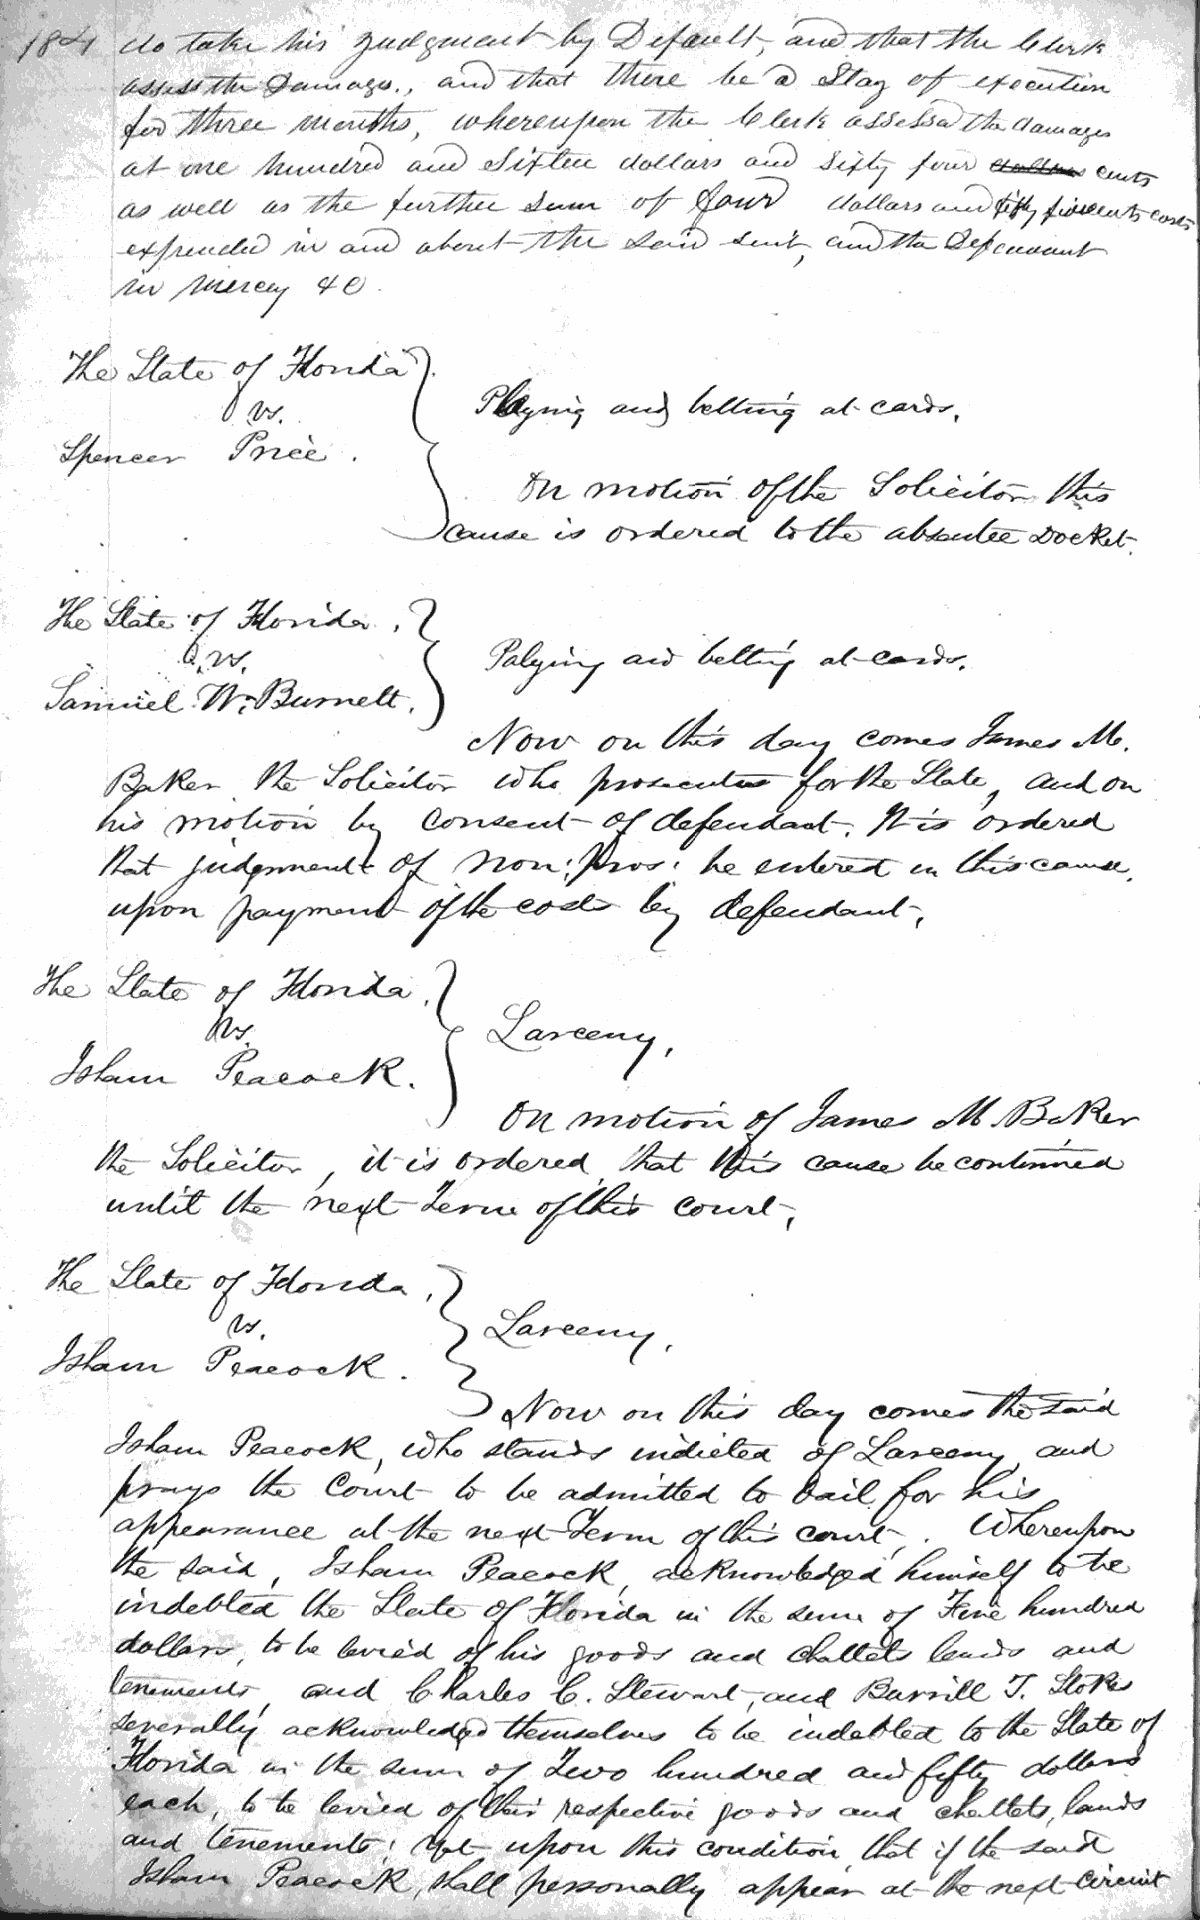 184 do take his judgment by Default, and that the Clerk
assess the Damages, and that there be a Stay of execution
for three months, whereupon the Clerk assessd the damages
at one hundred and Sixteen dollars and Sixty four dollars cents
as well as the further Sum of four dollars and fifty five cents costs
expended in and about the said suit, and the Defendant
in mercy &C.
The State of Florida
vs.
Spencer Price.
Playing and betting at cards.
On motion of the Solicitor this
cause is ordered to the absentee Docket.
The State of Florida.
vs.
Samuel W. Burnett.
Palying and betting at cards.
Now on this day comes James M.
Baker the Solicitor who prosecutes for the State, and on
his motion by consent of defendant. It is ordered
that judgment of non: pros: be entered in this cause.
upon payment of the costs by defendant.
The State of Florida.
vs.
Isham Peacock.
Larceny,
On motion of James M Baker
the Solicitor, it is ordered that this cause be continued
until the next Term of this court.
The State of Florida.
vs.
Isham Peacock.
Larceny,
Now on this day comes the said
Isham Peacock, who stands indicted of Larceny, and
prays the Court to be admitted to bail for his
appearance at the next Term of this court. Whereupon
the said, Isham Peacock, acknowledged himself to be
indebted the State of Florida in the sum of Five hundred
dollars, to be levied of his goods and chattets lands and
tenements, and Charles C. Stewart, and Burrill T. Stokes
severally acknowledged themselves to be indebted to the State of
Florida in the sum of Two hundred and fifty dollars
each, to be levied of their respective goods and chattets, lands
and tenements; yet upon this condition, that if the said
Isham Peacock, shall personally appear at the next circuit